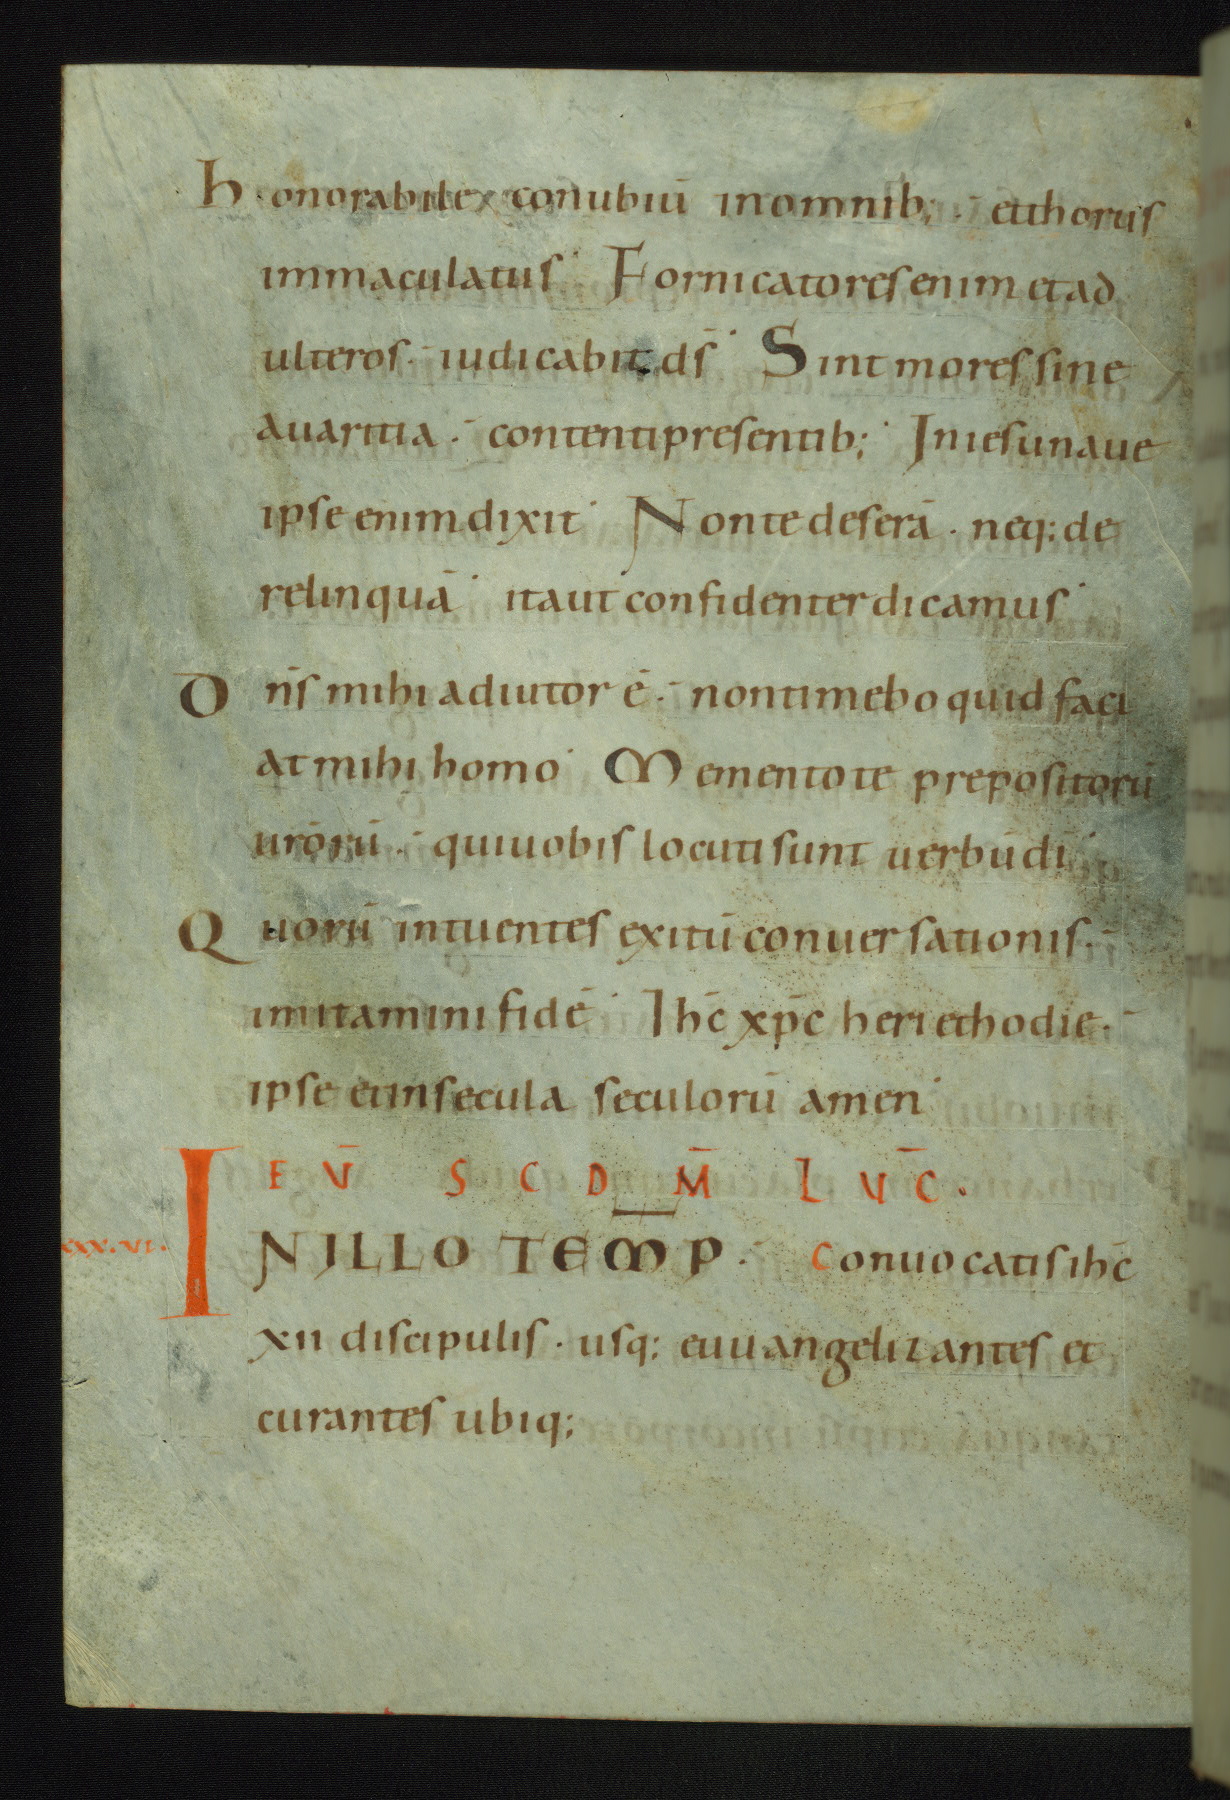 Honorabile conubiū inomnib; · etthorus
immaculatus Fornicatores enim et ad
ulteros · iudicabit ds̄ Sint mores sine
avaritia · contenti presentib; In iesu nave
ipse enim dixit Non te deserā · neq; de
relinquā ita ut confidenter dicamus
Dn̄s mihi adiutor ē · non timebo quid faci
at mihi homo Mementote prepositorū
urōrū · qui vobis locuti sunt verbū dī
Quorū intuentes exitū conversationis ·
imitamini fidē Ihc̄ xp̄c heri et hodie ·
ipse et in secula seculorū amen
EV̄ SCD M̄ LVC̄ ·
xxx·vi· IN ILLO TEMP̄ · Convocatis ihc̄
xii discipulis · usq; euuangelizantes et
curantes ubiq;